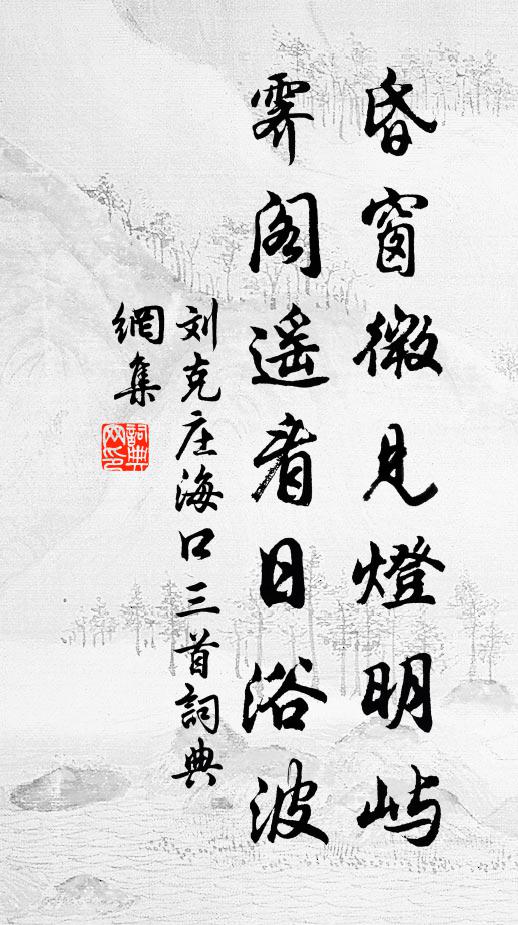 昏窗微见燈明屿
霁阁遥看日浴波
刘克庄海口三首詞典
網集
詞典网印